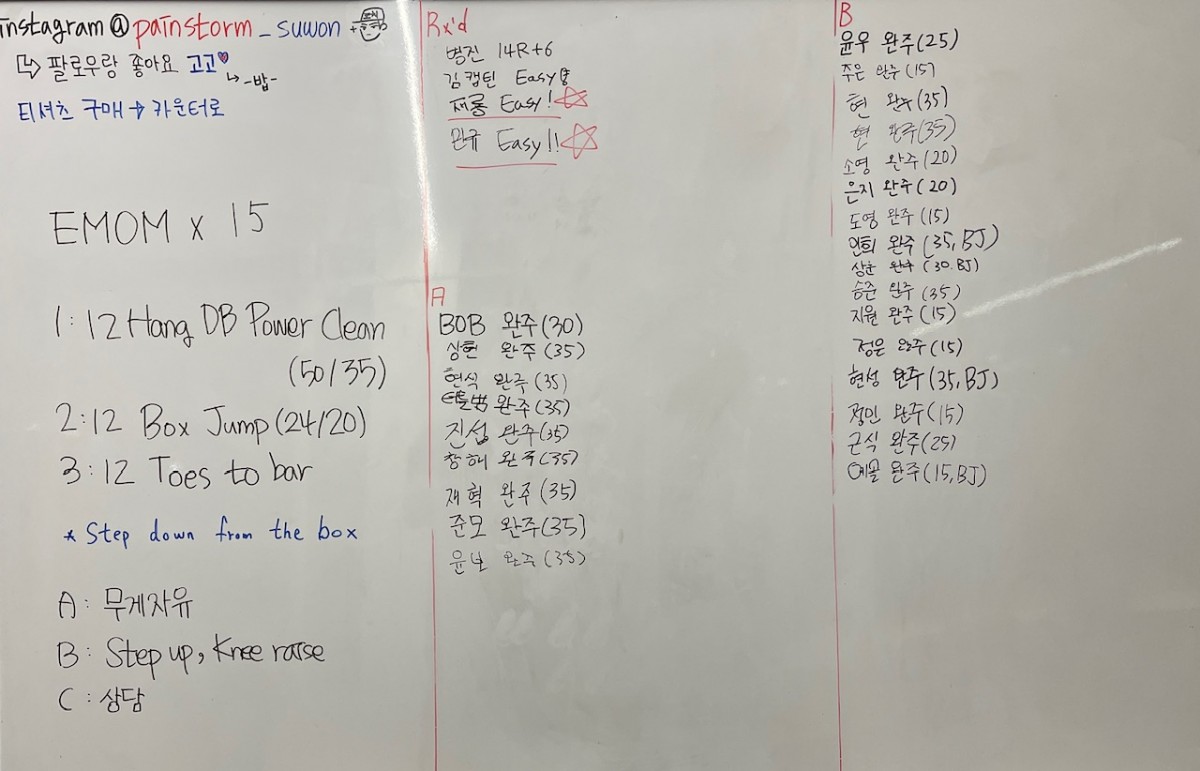 instagram@painstorm_suwon
↳ 팔로우랑 좋아요 고고♥
↳ -밥-
티셔츠 구매 → 카운터로
EMOM x 15
1: 12 Hang DB Power Clean
(50/35)
2: 12 Box Jump (24/20)
3: 12 Toes to bar
* Step down from the box
A: 무게자유
B: Step up, Knee raise
C: 상담
Rx'd
병진 14R+6
김캡틴 Easy
재롱 Easy!☆
완규 Easy!!☆
A
BOB 완주(30)
상현 완주(35)
현식 완주(35)
완주(35)
진섭 완주(35)
창해 완주(35)
재혁 완주(35)
준모 완주(35)
윤보 완주(35)
B
윤우 완주(25)
주은 완주(15)
현 완주(35)
현 완주(35)
소영 완주(20)
은지 완주(20)
도영 완주(15)
인희 완주(35,BJ)
상훈 완주(30.BJ)
승준 완주(35)
지원 완주(15)
정은 완주(15)
현성 완주(35,BJ)
정민 완주(15)
근식 완주(25)
예솔 완주(15,BJ)